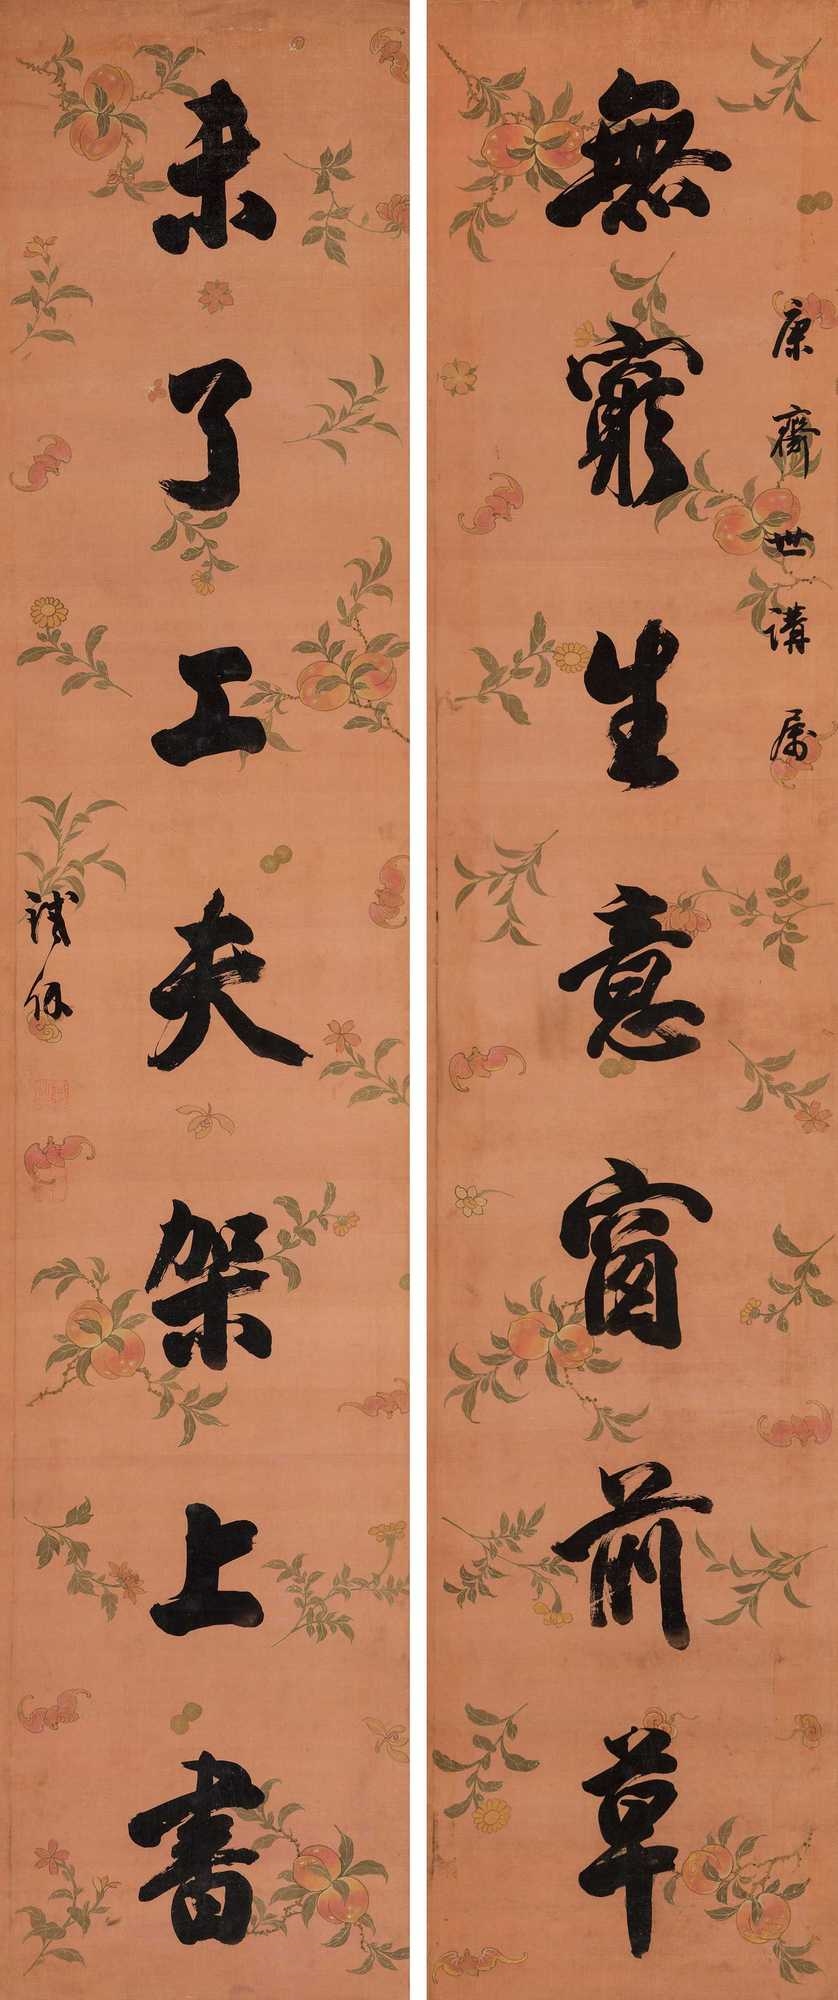 康齋世講属
無窮生意窗前草
未了工夫架上書